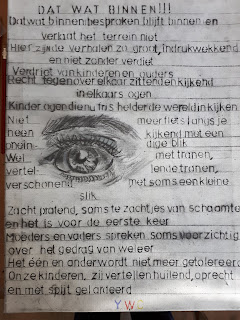 DAT WAT BINNEN!!!
Dat wat binnen besproken blijft binnen en
verlaat het terrein niet
Hier zijn de verhalen zo groot, indrukwekkend
en niet zonder verdriet
Verdriet van kinderen en ouders
Recht tegenover elkaar zittend en kijkend
in elkaars ogen
Kinderogen die nu in's helder de wereld in kijken
Niet meer fiets langs je
heen kijkend met een
ohein- dige blik
Wel met tranen,
vertel- lende tranen,
verschonend met soms een kleine
slik
Zacht pratend, soms te zachtjes van schaamte
en het is voor de eerste keer
Moeders en vaders spreken soms voorzichtig
over het gedrag van weleer
Het één en ander wordt niet meer getolereerd
Onze kinderen, zij vertellen huilend, oprecht
en met spijt gelanteerd
YWC